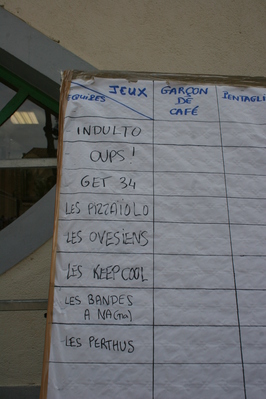 JEUX
EQUIPES
GARÇON
DE
CAFÉ
INDULTO
OUPS!
GET 34
LES PIZZAÏOLO
LES OVESIENS
LES KEEPCOOL
LES BANDES
A NA(na)
LES PERTHUS